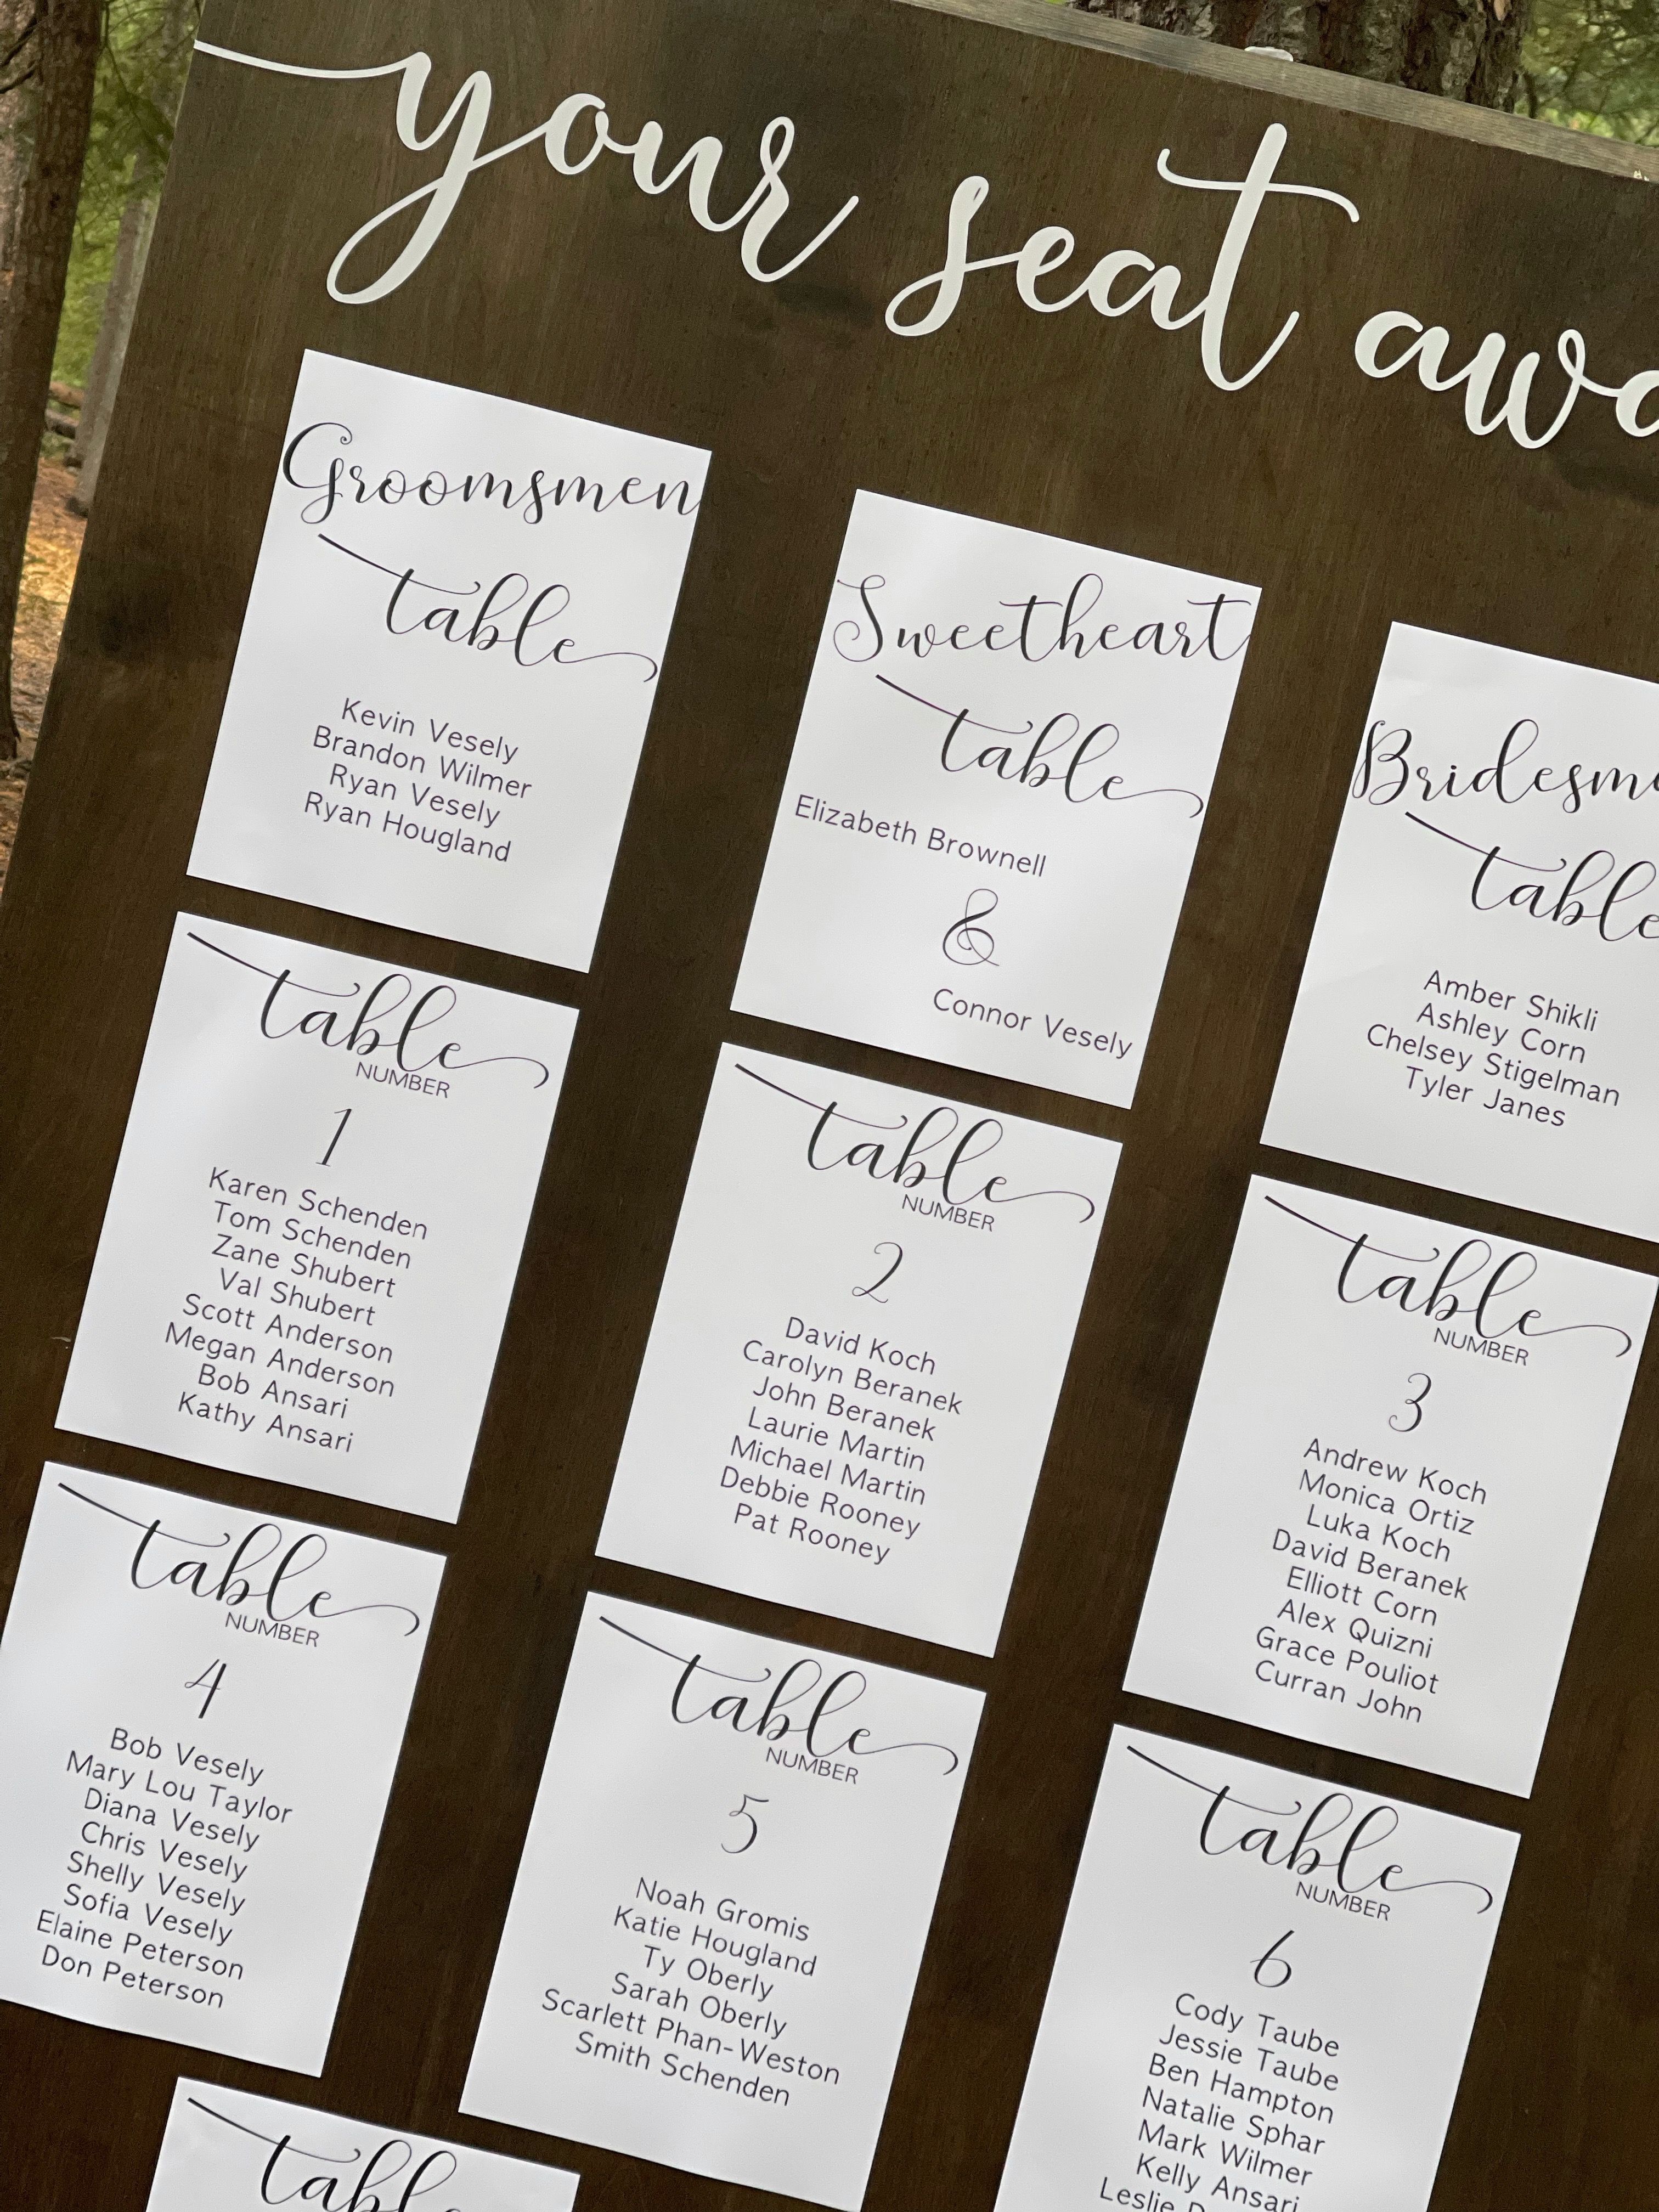 your seat
Groomsmen
table
Kevin Vesely
Brandon Wilmer
Ryan Vesely
Ryan Hougland
Sweetheart
table
Elizabeth Brownell
&
Connor Vesely
table
Amber Shikli
Ashley Corn
Chelsey Stigelman
Tyler Janes
table
NUMBER
1
Karen Schenden
Tom Schenden
Zane Shubert
Val Shubert
Scott Anderson
Megan Anderson
Bob Ansari
Kathy Ansari
table
NUMBER
2
David Koch
Carolyn Beranek
John Beranek
Laurie Martin
Michael Martin
Debbie Rooney
Pat Rooney
table
NUMBER
3
Andrew Koch
Monica Ortiz
Luka Koch
David Beranek
Elliott Corn
Alex Quizni
Grace Pouliot
Curran John
table
NUMBER
4
Bob Vesely
Mary Lou Taylor
Diana Vesely
Chris Vesely
Shelly Vesely
Sofia Vesely
Elaine Peterson
Don Peterson
table
NUMBER
5
Noah Gromis
Katie Hougland
Ty Oberly
Sarah Oberly
Scarlett Phan-Weston
Smith Schenden
table
NUMBER
6
Cody Taube
Jessie Taube
Ben Hampton
Natalie Sphar
Mark Wilmer
Kelly Ansari
Leslie
table